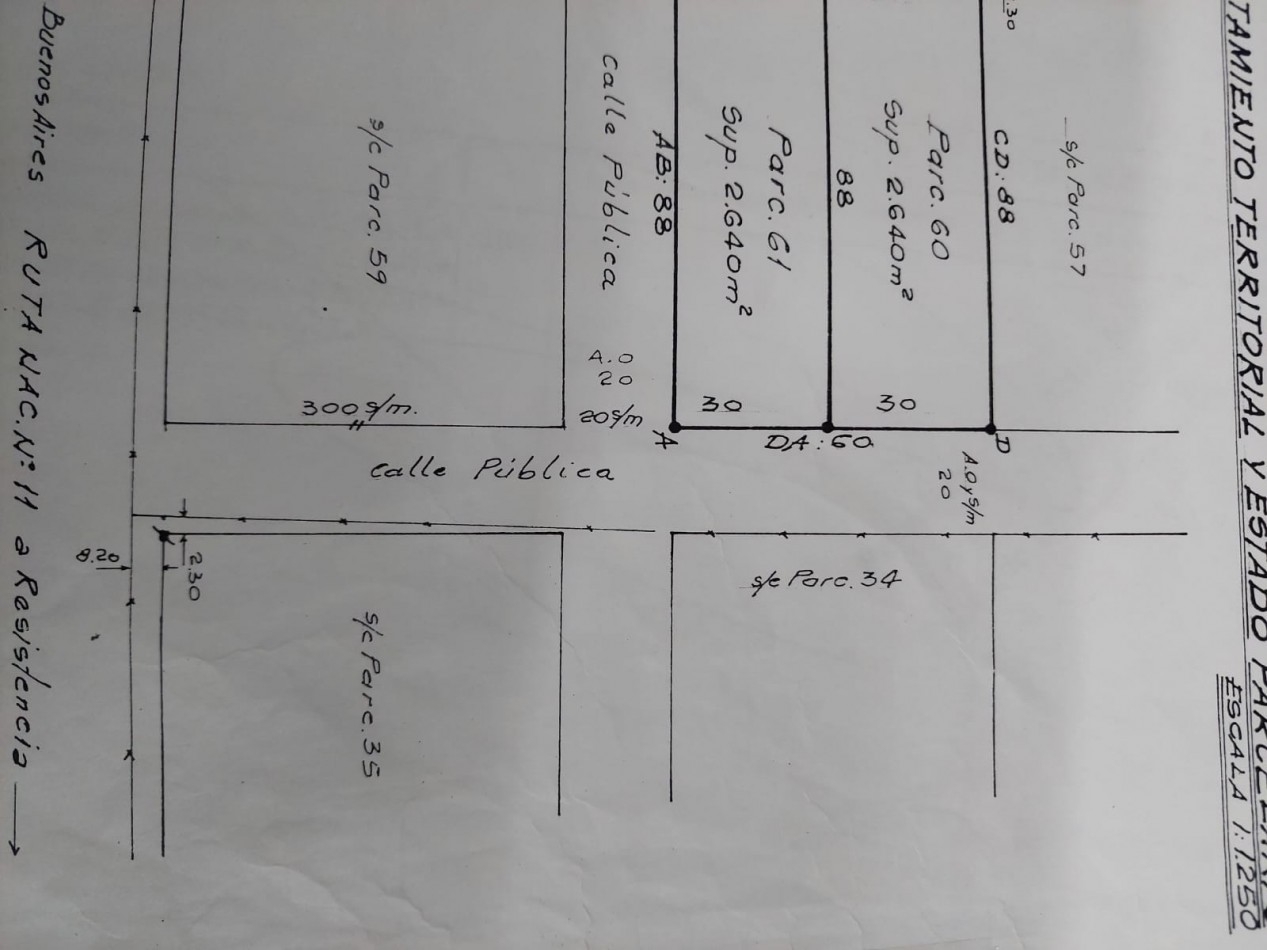 TAMIENTO TERRITORIAL Y ESTADO PARCELARIO
ESCALA 1:1250
.30
s/c Parc. 57
CD: 88
Parc. 60
Sup. 2.640m²
88
Parc. 61
Sup. 2.640m²
AB: 88
Calle Pública
A.O
20
s/c Parc. 59
300 s/m.
20 s/m
A
30
30
D
DA: 60
A.O y s/m
20
Calle Pública
2.30
8.20
s/c Parc. 34
s/c Parc. 35
Buenos Aires RUTA NAC. Nº: 11 a Resistencia